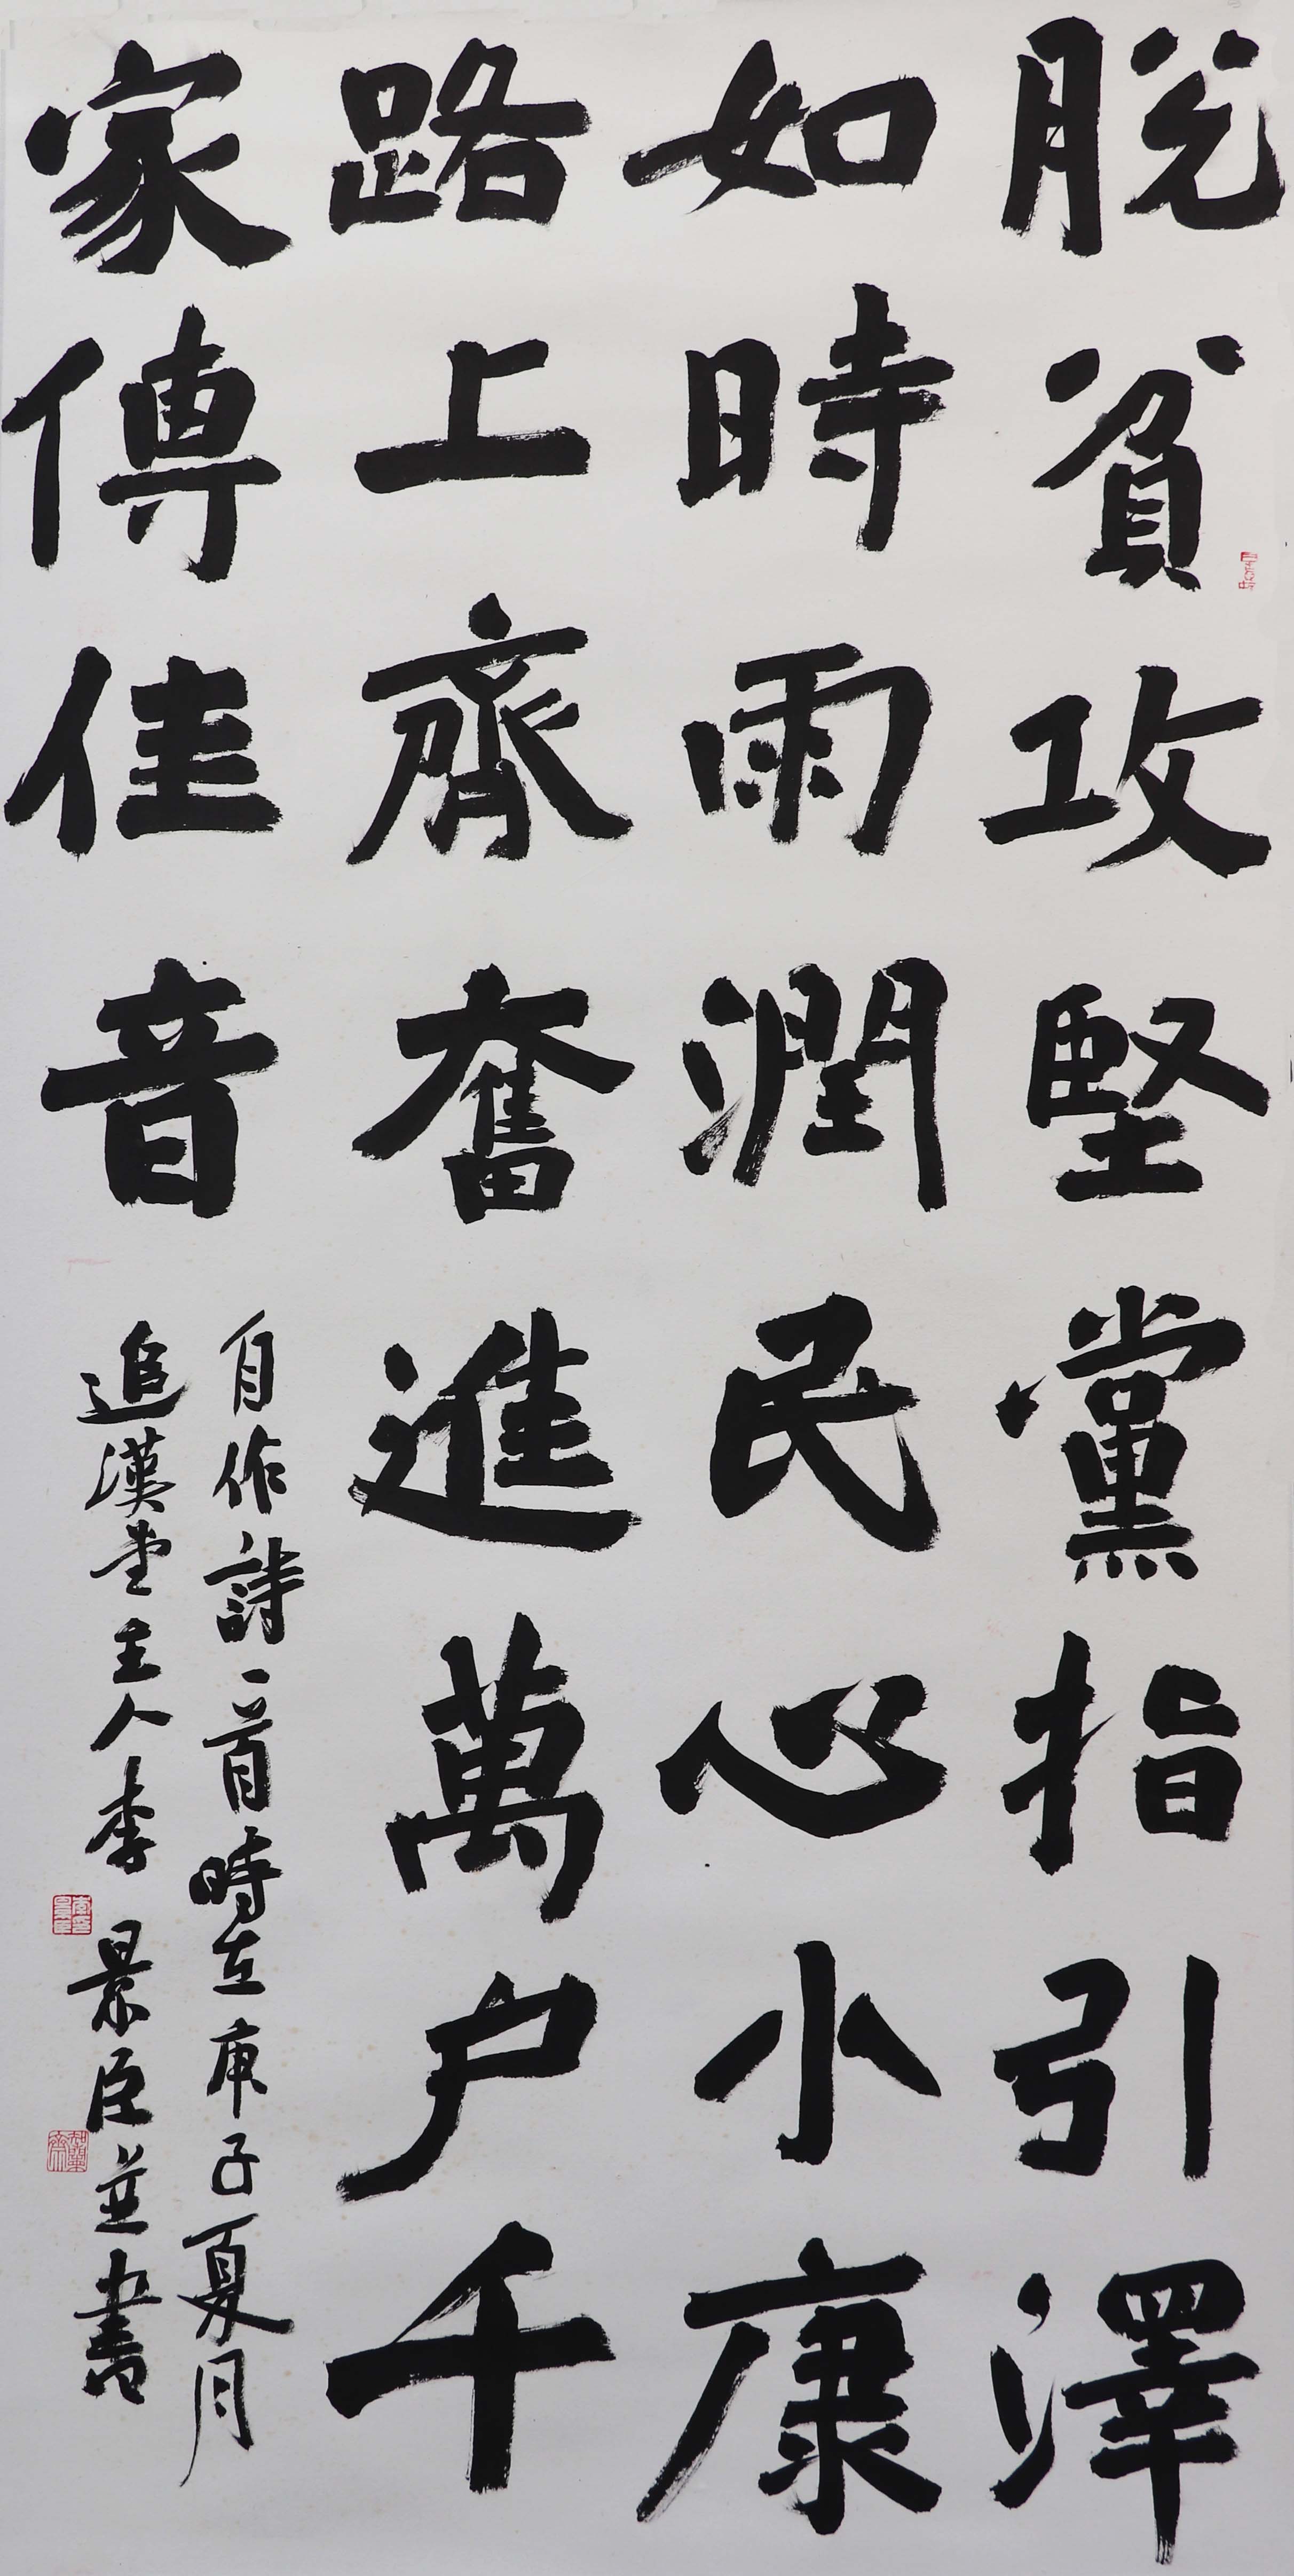 脱貧攻堅黨指引澤
如時雨潤民心小康
路上齊奮進萬户千
家傳佳音
自作詩一首時在庚子夏月
追漢堂主人李景臣並書